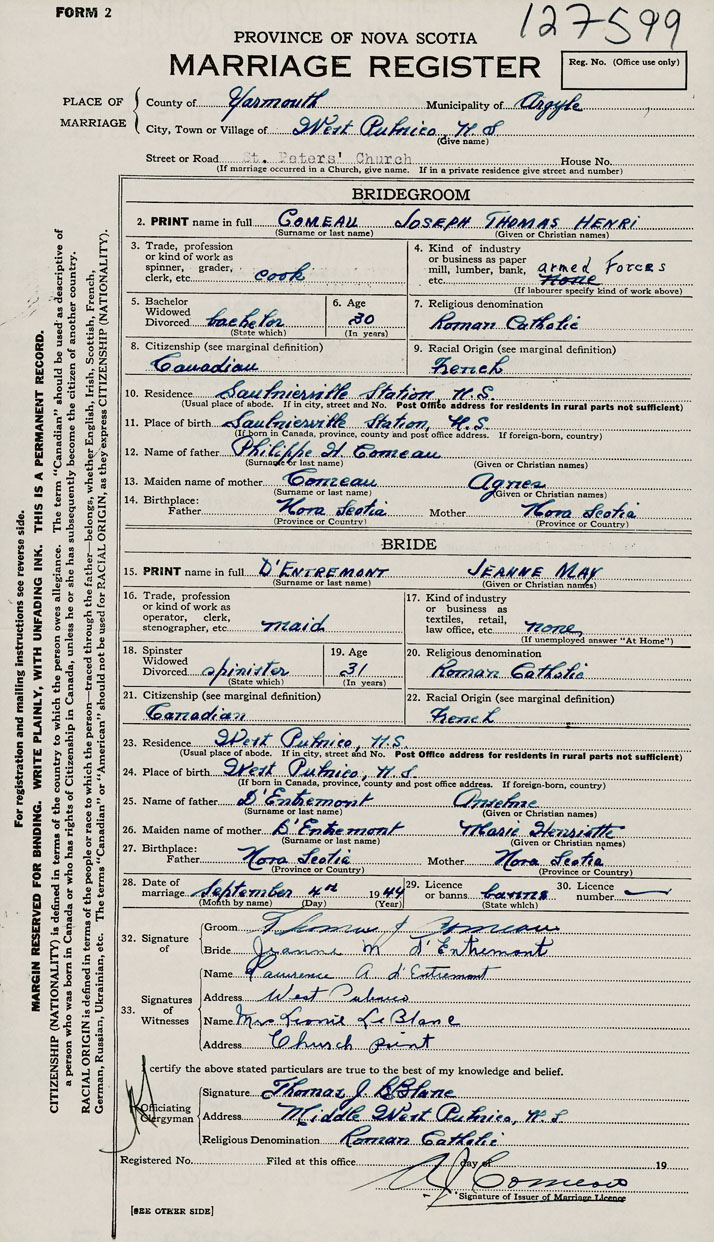 FORM 2
127599
PROVINCE OF NOVA SCOTIA
MARRIAGE REGISTER
Reg. No. (Office use only)
PLACE OF MARRIAGE
County of Yarmouth Municipality of Argyle
City, Town or Village of West Pubnico, N. S
(Give name)
Street or Road St. Peters' Church House No.
(If marriage occurred in a Church, give name. If in a private residence give street and number)
BRIDEGROOM
2. PRINT name in full COMEAU JOSEPH THOMAS HENRI
(Surname or last name) (Given or Christian names)
3. Trade, profession or kind of work as spinner, grader, clerk, etc. cook
4. Kind of industry or business as paper mill, lumber, bank, etc. armed Forces None
(If labourer specify kind of work above)
5. Bachelor Widowed Divorced bachelor
(State which)
6. Age 30
(In years)
7. Religious denomination
Roman Catholic
8. Citizenship (see marginal definition)
Canadian
9. Racial Origin (see marginal definition)
French
10. Residence Saulnierville Station, N.S.
(Usual place of abode. If in city, street and No. Post Office address for residents in rural parts not sufficient)
11. Place of birth Saulnierville Station, N.S.
(If born in Canada, province, county and post office address. If foreign-born, country)
12. Name of father Philippe H. Comeau
(Surname or last name) (Given or Christian names)
13. Maiden name of mother Comeau Agnes
(Surname or last name) (Given or Christian names)
14. Birthplace: Father Nova Scotia Mother Nova Scotia
(Province or Country) (Province or Country)
BRIDE
15. PRINT name in full D'ENTREMONT JEANNE MAY
(Surname or last name) (Given or Christian names)
16. Trade, profession or kind of work as operator, clerk, stenographer, etc. maid
17. Kind of industry or business as textiles, retail, law office, etc. none
(If unemployed answer "At Home")
18. Spinster Widowed Divorced spinister
(State which)
19. Age 31
(In years)
20. Religious denomination
Roman Catholic
21. Citizenship (see marginal definition)
Canadian
22. Racial Origin (see marginal definition)
French
23. Residence West Pubnico, N.S.
(Usual place of abode. If in city, street and No. Post Office address for residents in rural parts not sufficient)
24. Place of birth West Pubnico, N. S.
(If born in Canada, province, county and post office address. If foreign-born, country)
25. Name of father D'Entremont Anselme
(Surname or last name) (Given or Christian names)
26. Maiden name of mother D'Entremont Marie Henriette
(Surname or last name) (Given or Christian names)
27. Birthplace: Father Nova Scotia Mother Nova Scotia
(Province or Country) (Province or Country)
28. Date of marriage September 4th 1944
(Month by name) (Day) (Year)
29. Licence or banns banns
(State which)
30. Licence number
32. Signature of
Groom Thomas J Comeau
Bride Jeanne M d'Entremont
33. Signatures of Witnesses
Name Lawrence A d'Entremont
Address West Pubnico
Name Mrs Leonie LeBlanc
Address Church point
I certify the above stated particulars are true to the best of my knowledge and belief.
Officiating Clergyman
Signature Thomas J. LeBlanc
Address Middle West Pubnico, N. S
Religious Denomination Roman Catholic
Registered No. Filed at this office day of 19
Comeau
Signature of Issuer of Marriage Licence
[SEE OTHER SIDE]
For registration and mailing instructions see reverse side.
MARGIN RESERVED FOR BINDING. WRITE PLAINLY, WITH UNFADING INK. THIS IS A PERMANENT RECORD.
CITIZENSHIP (NATIONALITY) is defined in terms of the country to which the person owes allegiance. The term "Canadian" should be used as descriptive of
a person who was born in Canada or who has rights of Citizenship in Canada, unless he or she has subsequently become the citizen of another country.
RACIAL ORIGIN is defined in terms of the people or race to which the person—traced through the father—belongs, whether English, Irish, Scottish, French,
German, Russian, Ukrainian, etc. The terms "Canadian" or "American" should not be used for RACIAL ORIGIN, as they express CITIZENSHIP (NATIONALITY).